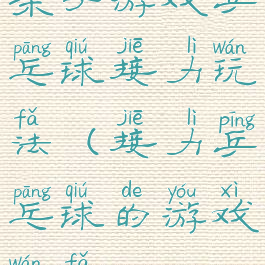 pāng qiú jiē lì wán
乓球接力玩
fǎ jiē lì pīng
法（接力乒
pāng qiú de yóu xì
乓球的游戏
wán fǎ